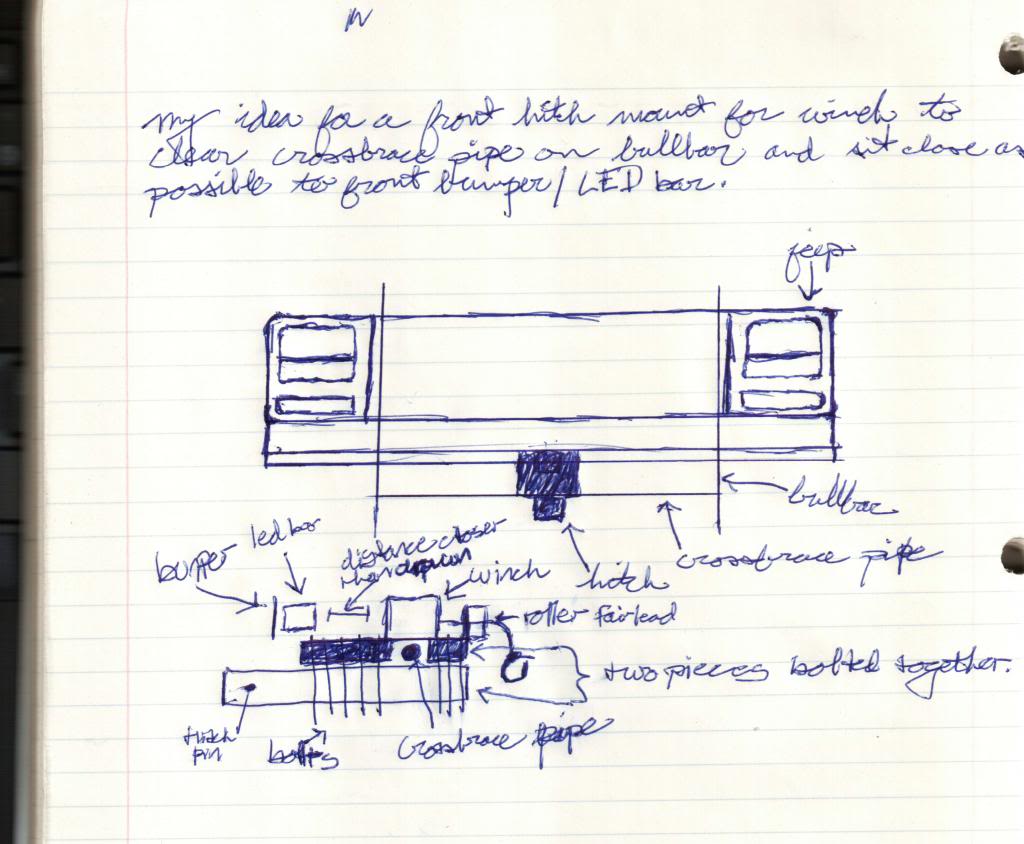 my idea for a front hitch mount for winch to
clear crossbrace pipe on bullbar and sit close as
possible to front bumper/LED bar.
jeep
bullbar
crossbrace pipe
hitch
led bar
bumper
distance closer
than drawn
winch
roller fairlead
two pieces bolted together.
hitch
pin
bolts
crossbrace pipe